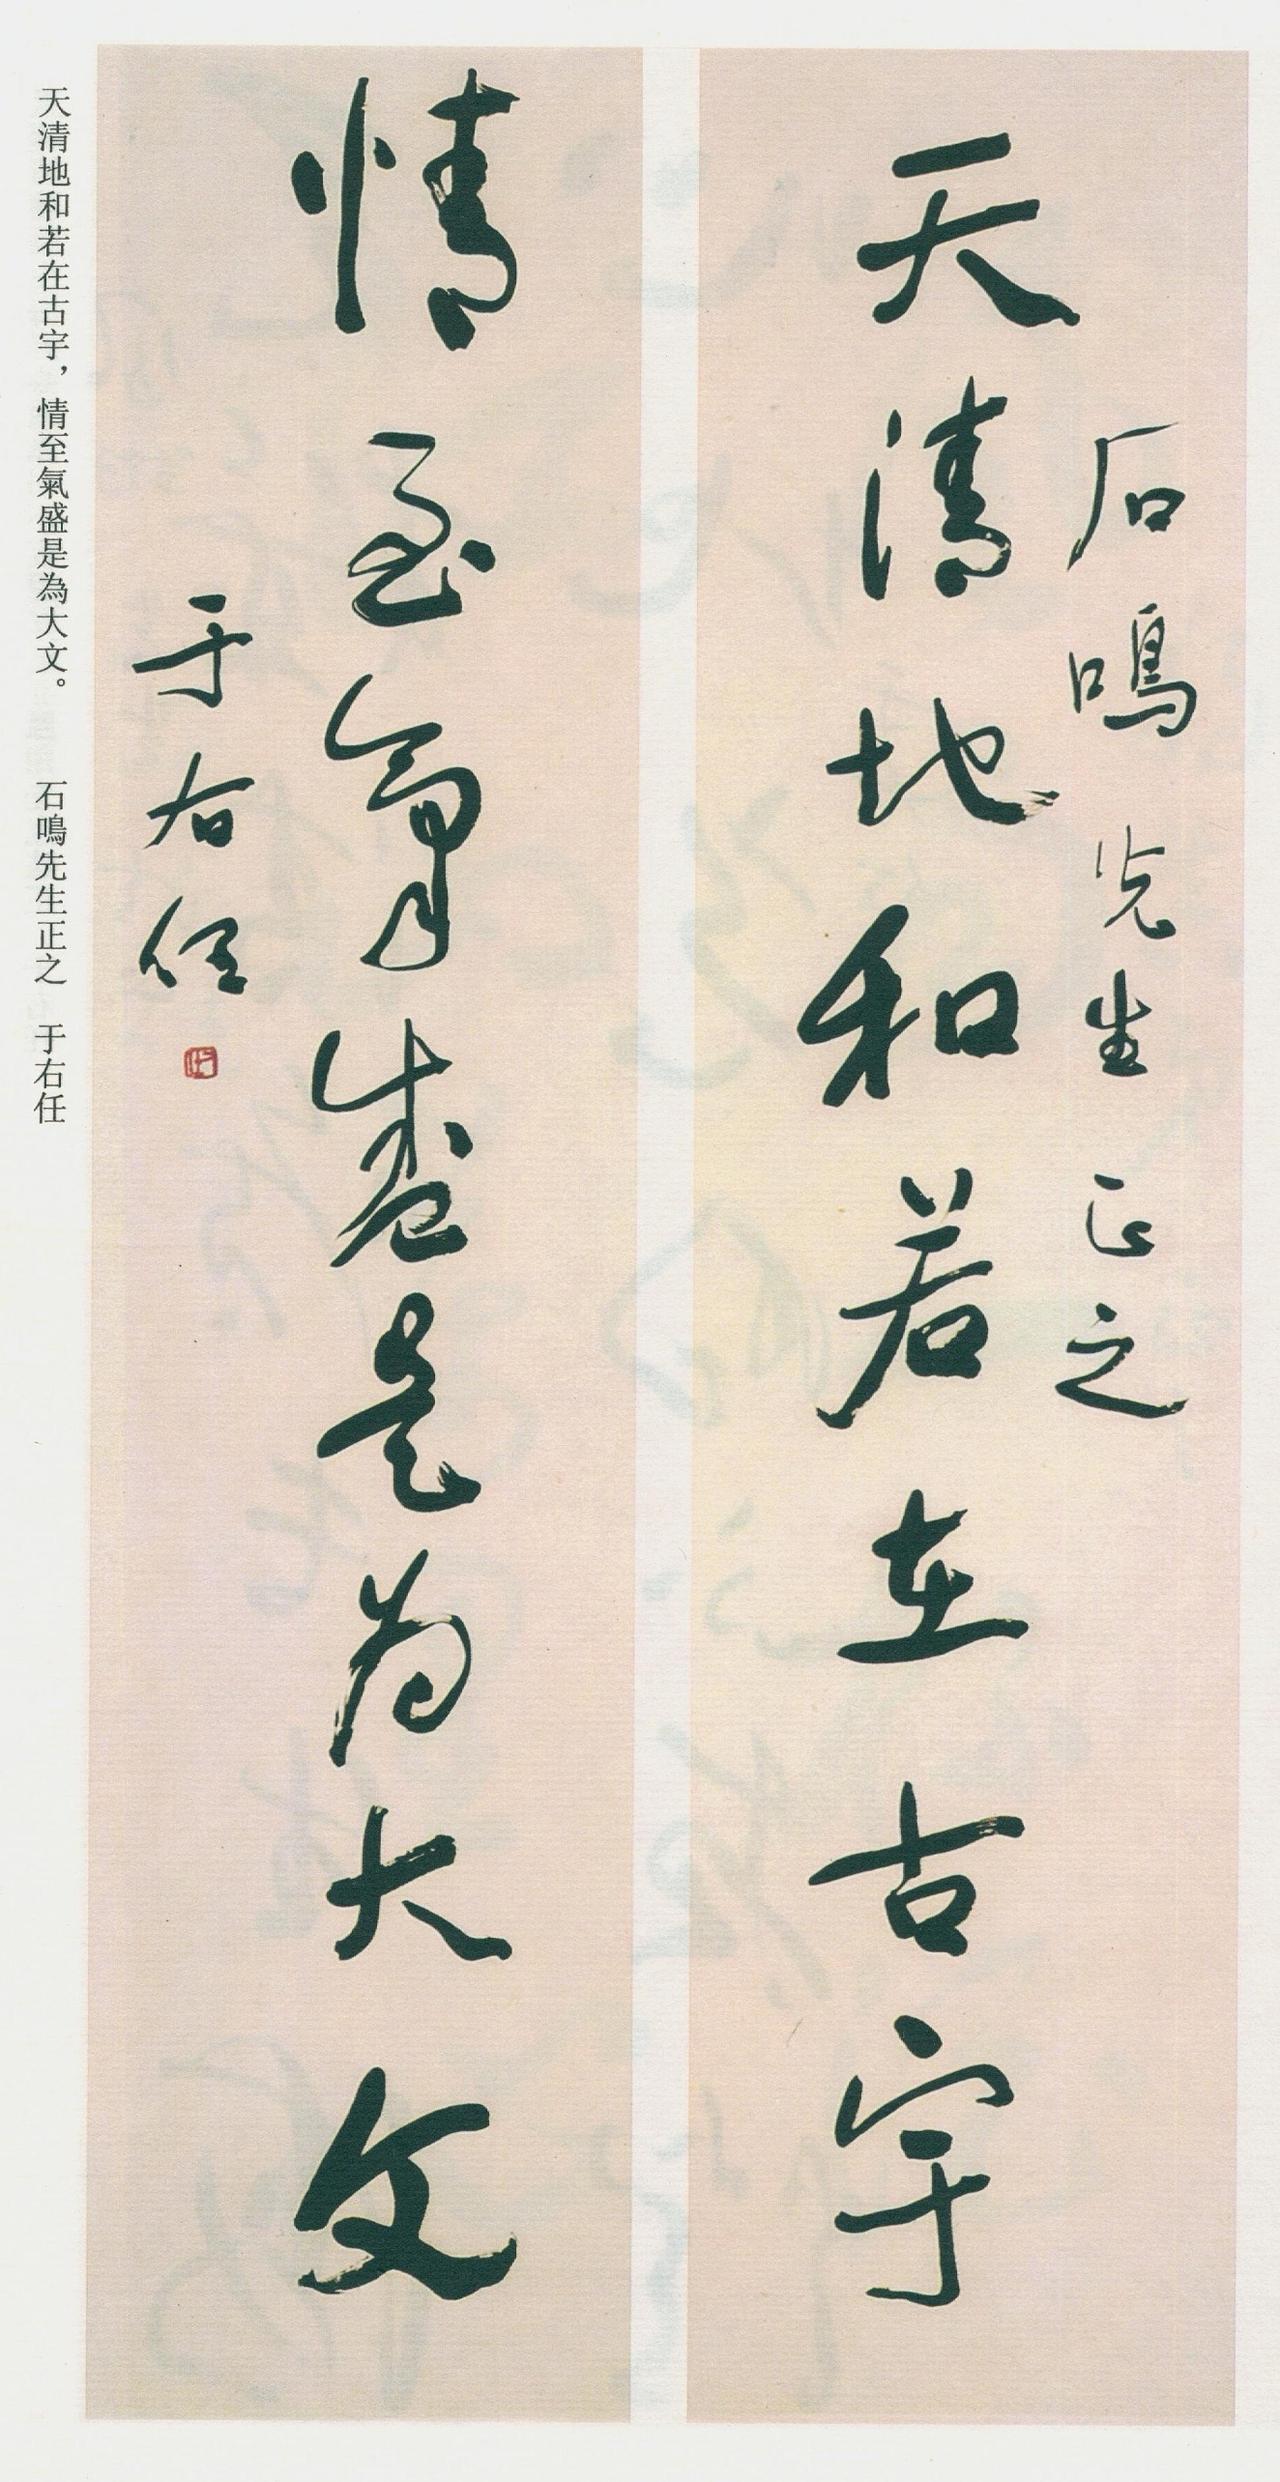 石鳴先生正之
天清地和若在古宇
情至氣盛是為大文
于右任
天清地和若在古宇，情至氣盛是為大文。　石鳴先生正之　于右任